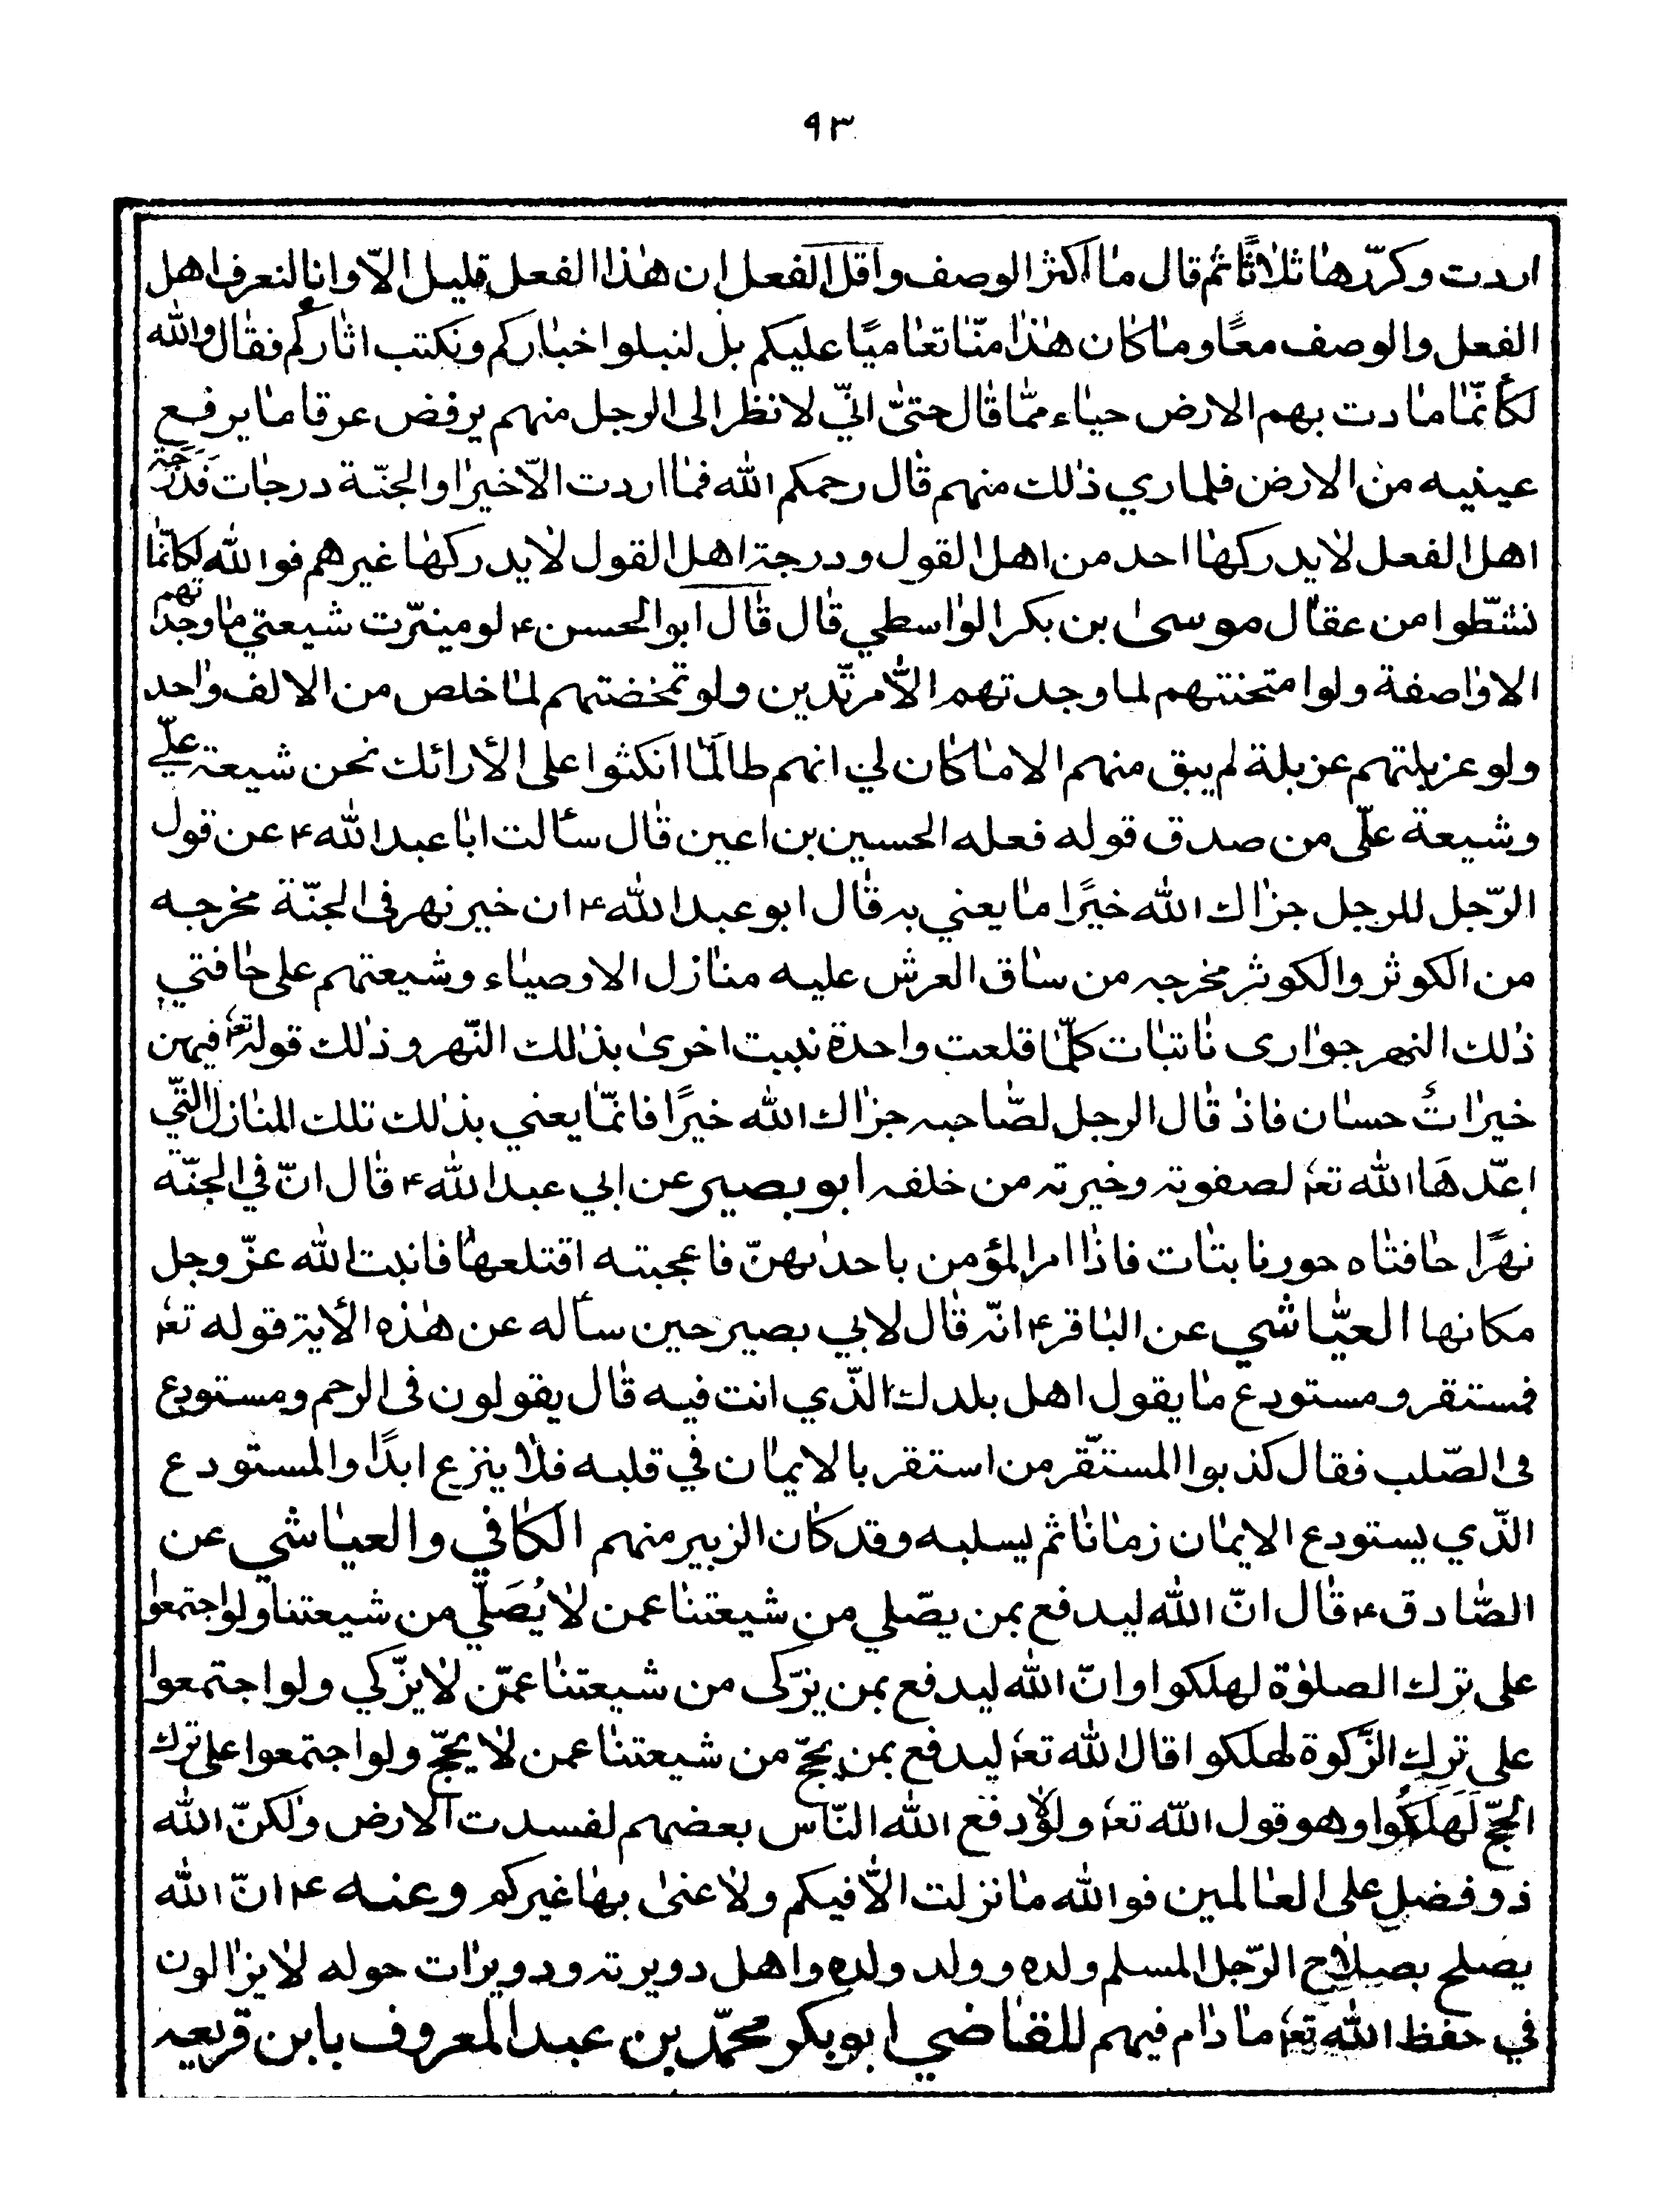 ٩٣
اردت وكرّرها ثلاثًا ثم قال ما اكثر الوصف واقل الفعل ان هذا الفعل قليل الّا وانا لنعرف اهل
الفعل والوصف معًا وما كان هذا منّا تعاميًا عليكم بل لنبلوا اخباركم ونكتب اثاركم فقال والله
لكأنّما مادت بهم الارض حياء ممّا قال حتىّ انيّ لانظر الى الرجل منهم يرفض عرقا ما يرفع
عينيه من الارض فلما رى ذلك منهم قال رحمكم الله فما اردت الّا خيرا والجنّة درجات فدرجة
اهل الفعل لا يدركها احد من اهل القول ودرجة اهل القول لا يدركها غيرهم فو الله لكانّما
نشّطوا من عقال موسى بن بكر الواسطي قال قال ابو الحسن ع لو ميّزت شيعتي ما وجدتهم
الا واصفة ولو امتحنتهم لما وجدتهم الّا مرتّدين ولو تمخضتهم لما خلص من الالف واحد
ولو غربلتهم غربلة لم يبق منهم الا ما كان لي انهم طالما انكئوا على الأرائك نحن شيعة عليّ
وشيعة عليّ من صدق قوله فعله الحسين بن اعين قال سألت ابا عبد الله ع عن قول
الرّجل للرجل جزاك الله خيرًا ما يعني به قال ابو عبد الله ع ان خير نهر فى الجنّة مخرجه
من الكوثر والكوثر مخرجه من ساق العرش عليه منازل الاوصياء وشيعتهم على حافتي
ذلك النهر جوارى نابتات كلّما قلعت واحدة نبتت اخرى بذلك النّهر وذلك قوله تعم فيهن
خيراتٌ حسان فاذ قال الرجل لصّاحبه جزاك الله خيرًا فانمّا يعني بذلك تلك المنازل التّي
اعّدها الله تعم لصفوته وخيرته من خلفه ابو بصير عن ابي عبد الله ع قال انّ في الجنّة
نهرًا حافتاه حور نابتات فاذا امر المؤمن باحديهنّ فاعجبته اقتلعها فانبت الله عزّ وجل
مكانها العيّاشي عن الباقر ع انّه قال لابي بصير حين سأله عن هذه الأية قوله تعم
فمستقر ومستودع ما يقول اهل بلدك الذّي انت فيه قال يقولون فى الرحم ومستودع
فى الصّلب فقال كذبوا المستقّر من استقر بالايمان في قلبه فلا ينزع ابدًا والمستودع
الذّي يستودع الايمان زمانا ثم يسلبه وقد كان الزبير منهم الكافي والعياشي عن
الصّادق ع قال انّ الله ليدفع بمن يصّلي من شيعتنا عمن لا يُصَلّي من شيعتنا ولو اجتمعوا
على ترك الصلوة لهلكوا وانّ الله ليدفع بمن يزّكى من شيعتنا عمّن لا يزّكي ولو اجتمعوا
على ترك الزّكوة لهلكوا قال الله تعم ليدفع بمن يحجّ من شيعتنا عمن لا يحجّ ولو اجتمعوا على ترك
الحجّ لَهَلَكُوا وهو قول اللّه تعم ولولا دفع الله النّاس بعضهم لفسدت الارض ولكنّ الله
ذو فضل على العالمين فو الله ما نزلت الّا فيكم ولا عنى بها غيركم وعنه ع انّ الله
يصلح بصلاح الرّجل المسلم ولده وولد ولده واهل دويرته ودويرات حوله لا يزالون
في حفظ الله تعم ما دام فيهم للقاضي ابو بكر محمّد بن عبد المعروف بابن قريعه